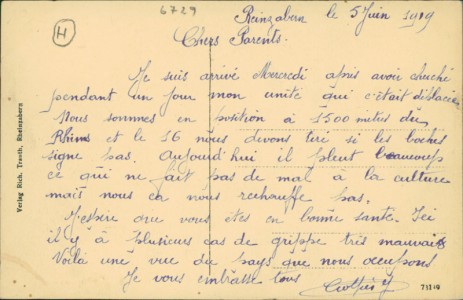 6729
H
Reinzabern le 5 Juin 1919
Chers Parents.
Je suis arrivé Mercredi après avoir cherché
pendant un jour mon unité qui s'était déplacée
Nous sommes en position à 1500 mètres du
Rhin et le 16 nous devons tiré si les boches
signe pas. Aujourd'hui il pleut beaucoup
ce qui ne fait pas de mal à la culture
mais nous ça nous rechauffe pas.
J'espère que vous êtes en bonne santé. Ici
il y à plusieurs cas de grippe très mauvais
Voilà une vue du pays que nous occupons
Je vous embrasse tous
Verlag Rich. Trauth, Rheinzabern